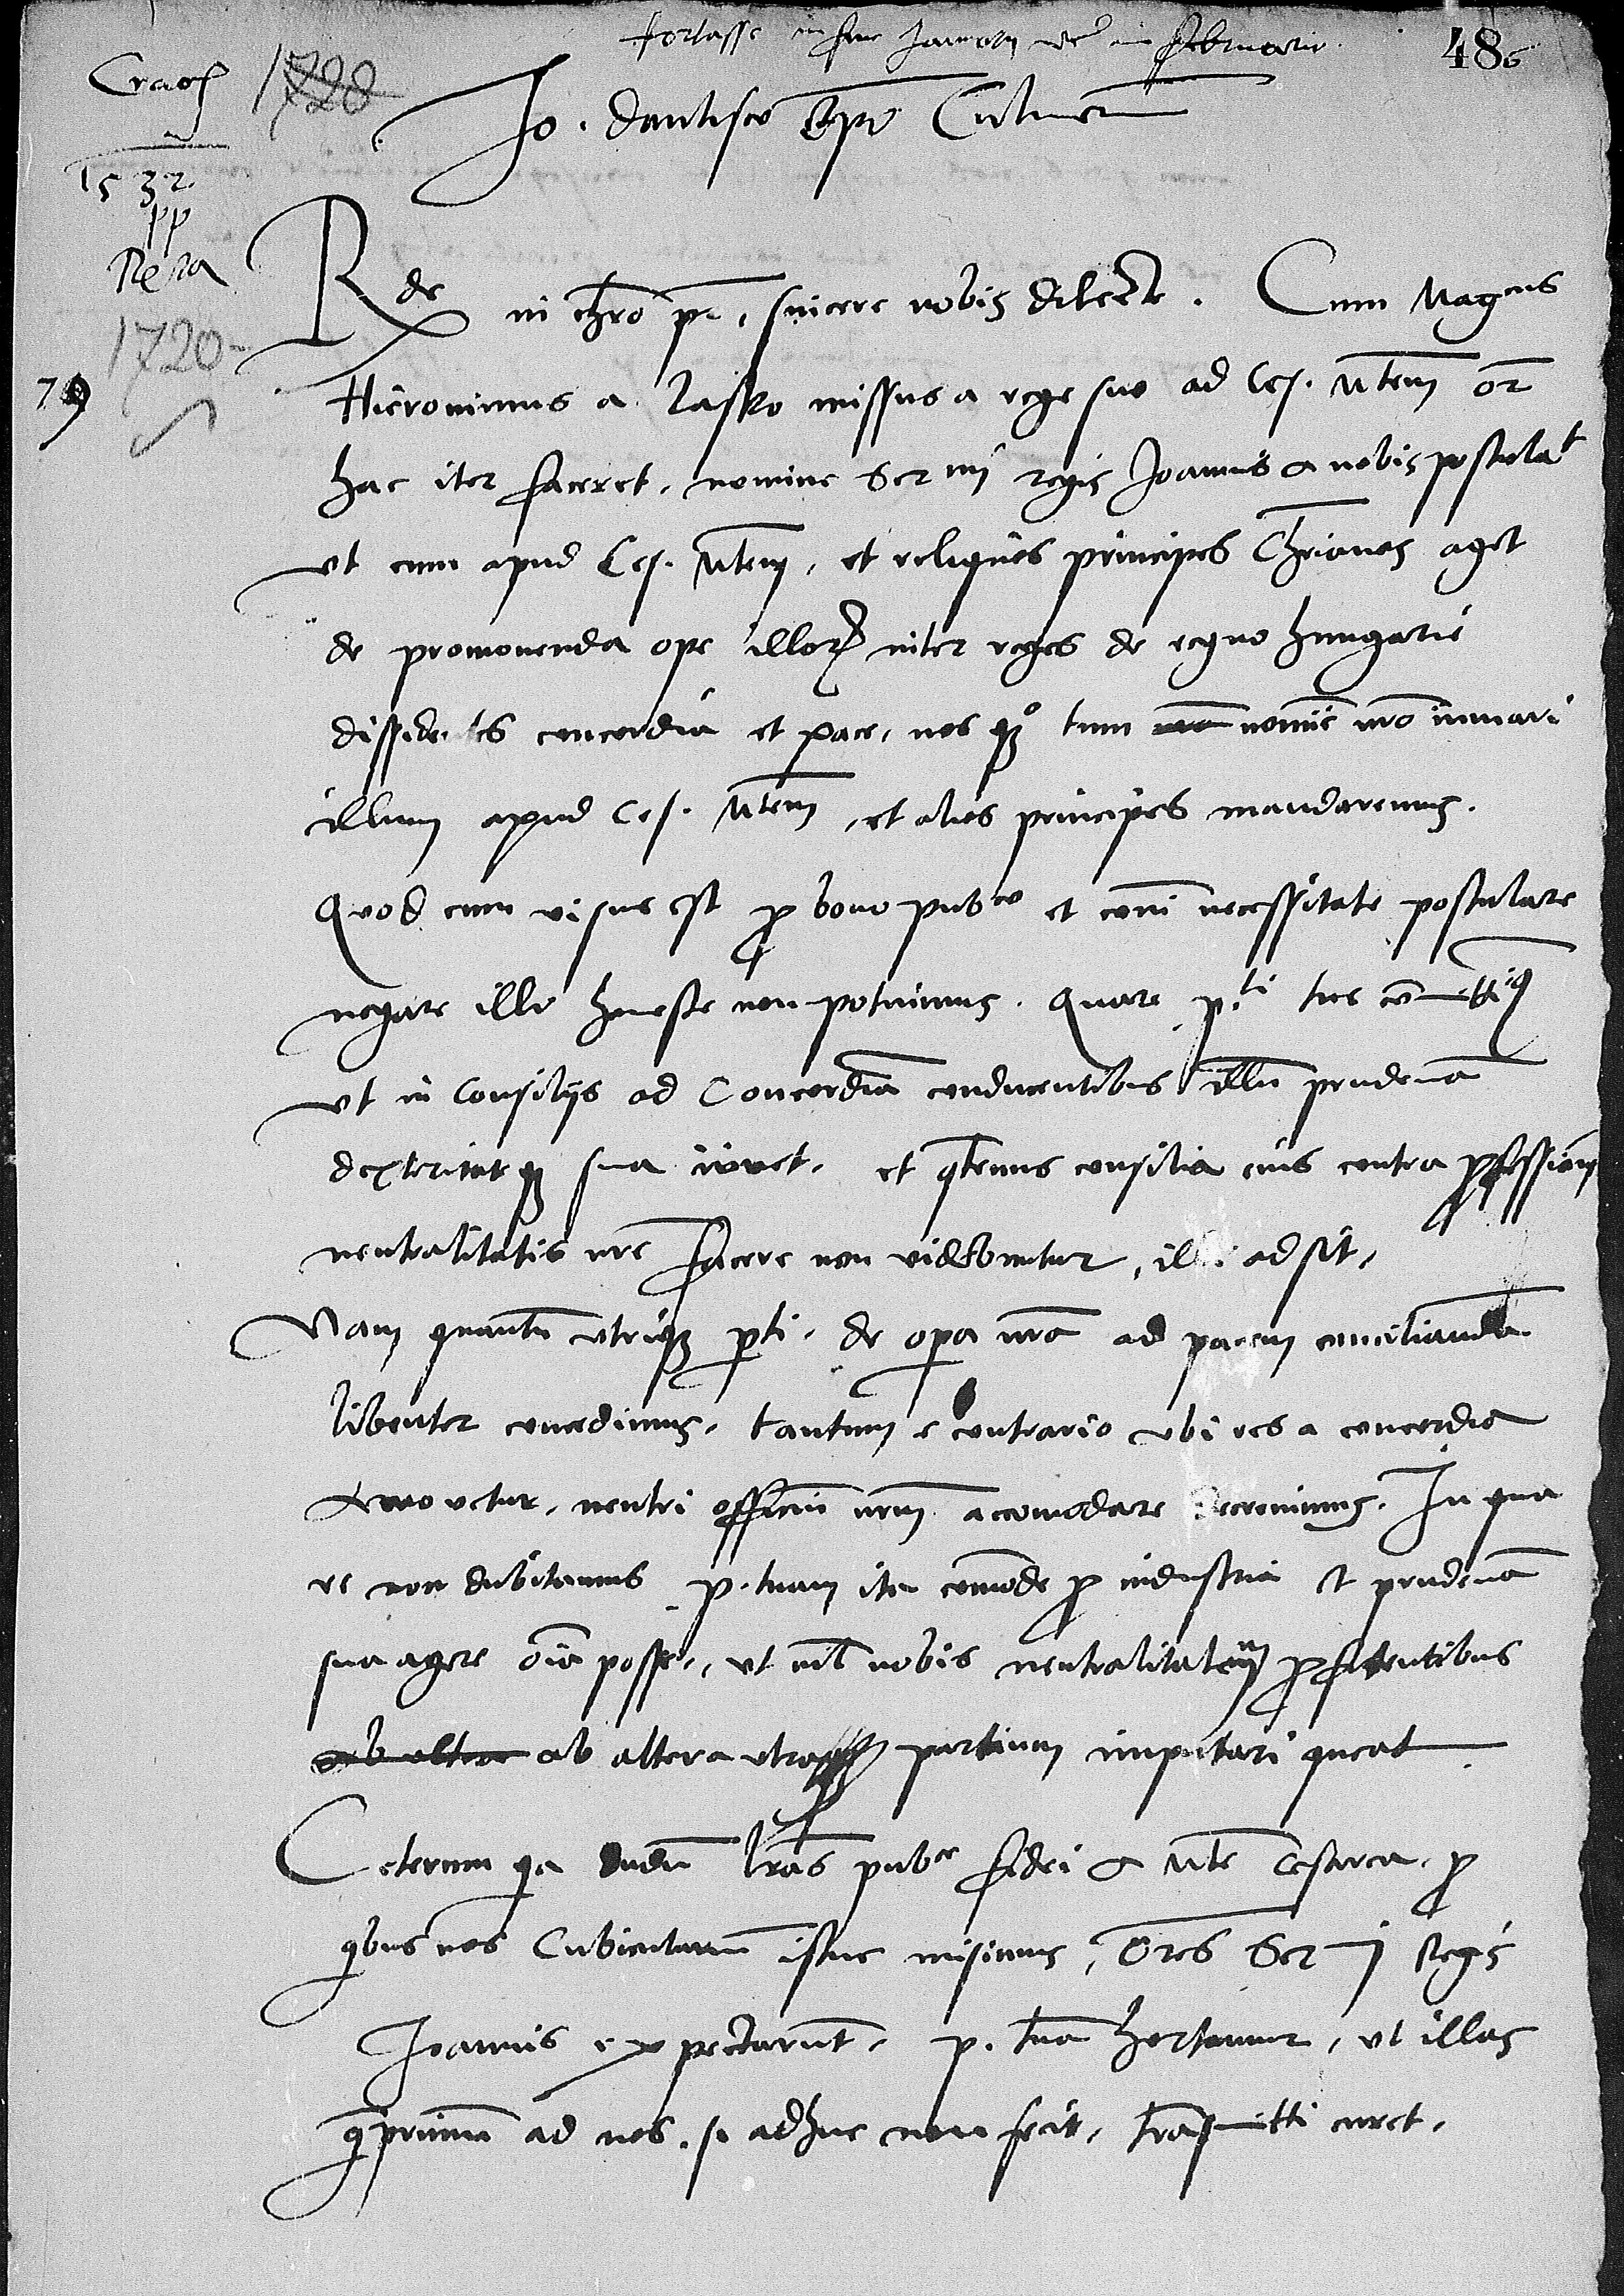 fortasse in fine Januarii vel in Februario
48
Crac
1728
Io. Dantisco Epo Culmen
1532
pp
Rema
1720
79
Rde in chro pr, sincere nobis dilecte. Cum Magcus
Hieronimus a Lasko missus a rege suo ad Ces. Mtem or
hac iter faceret, nomine Sermi regis Joannis a nobis postulat
ut cum apud Ces. Mtem, et reliquos principes Chrianos aget
de promovenda ope illor inter reges de regno Hungarie
dissidentes concordia et pace, nos qz tum nomine nro iuvari
illum apud Ces. Mtem, et alios principes mandaremus.
Quod cum visus est pro bono pubco et coni necessitate postulare
negare illi honeste non potuimus. Quare p.ti tue committimq
ut in consiliis ad Concordiam conducentibus illu prudencia
dexteritateqz sua iuvet, et qtenus consilia eius contra professionem
neutralitatis nre facere non videbuntur, illi adsit,
Nam quantu utriqz pti, de opa nra ad pacem conciliandam
libenter concedimus, tantum e contrario ubi res a concordia
amovetur, neutri officiu nrm accomodare decrevimus. In qua
re non dubitamus p. tuam ita comode pro industria et prudencia
sua agere oia posse, ut nil nobis neutralitatem profitentibus
ab altera utraqz partium imputari queat.
Ceterum qa dudu lras pubce fidei a Mte Cesarea, pro
qbus nos Cubicularium istuc misimus, Ores Sermi Regis
Joannis expectarunt, p. tua hortamur, ut illas
qprimum ad nos, si adhuc non fecit, transmitti curet.